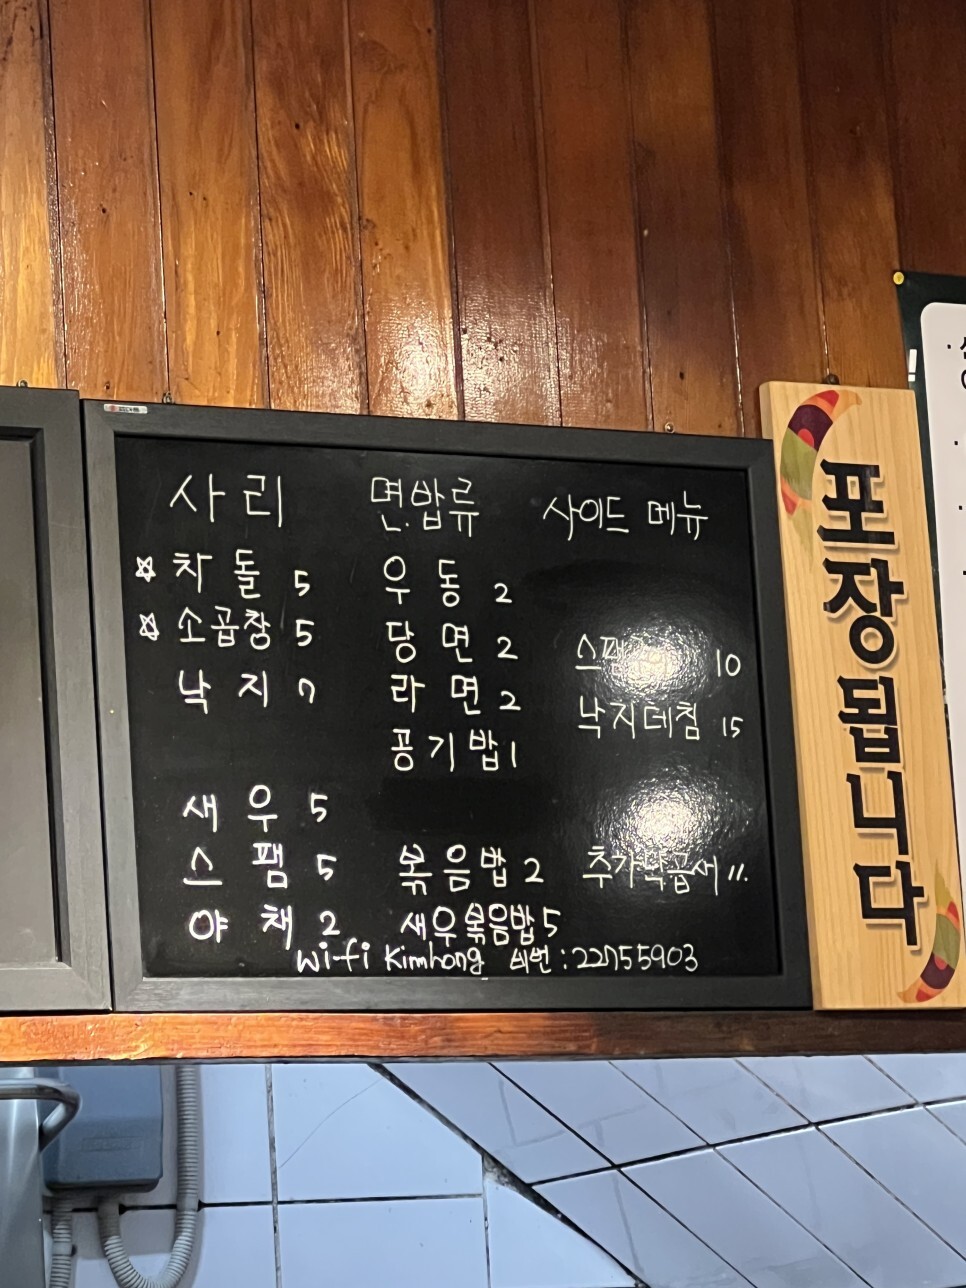 사리
☆ 차돌 5
☆ 소곱창 5
낙지 7
새우 5
스팸 5
야채 2
면.밥류
우동 2
당면 2
라면 2
공기밥 1
볶음밥 2
새우볶음밥 5
사이드 메뉴
10
낙지데침 15
Wi-fi Kimhong 비번 : 22755903
포장됩니다